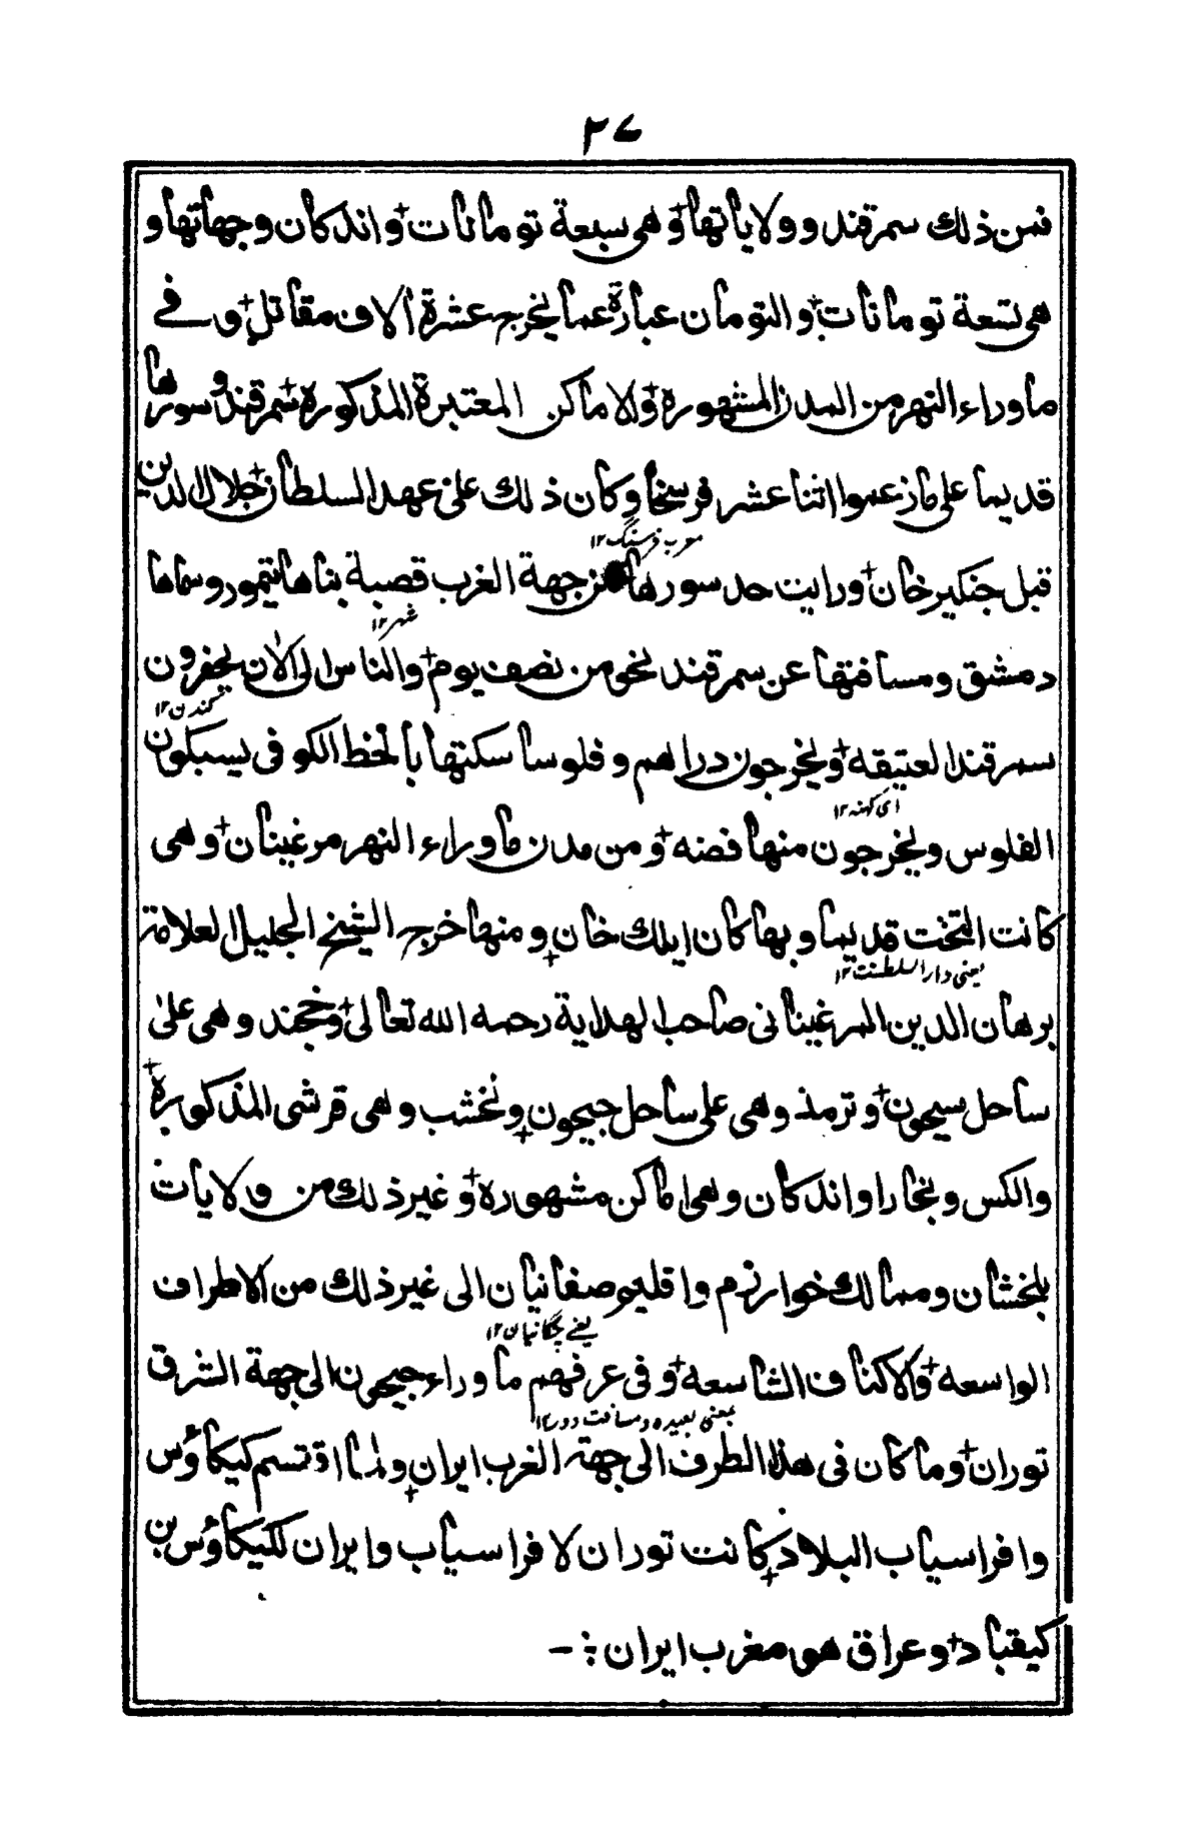 ٢٧
فمن ذلك سمرقند وولاياتها وهى سبعة تومانات واندكان وجهاتها و
هى تسعة تومانات والتومان عبارة عما يخرج عشرة آلاف مقاتل وفے
ماوراء النهر من المدن المشهورة والاماكن المعتبرة المذكورة سمرقند وسورها
قديما على مازعموا اثنا عشر فرسخا وكان ذلك على عهد السلطان جلال الدين
معرب فرسنگ ١٢
قبل جنكيرخان ورايت حد سورها من جهة الغرب قصبة بناها تيمور وسماها
شهر ١٢
دمشق ومسافتها عن سمرقند نحو من نصف يوم والناس الى الآن يحفرون
كندن ١٢
سمرقند العتيقه ويخرجون دراهم وفلوسا سكتها بالخط الكوفى يسبكون
اى كهنه ١٢
الفلوس ويخرجون منها فضه ومن مدن ماوراء النهر مرغينان وهى
كانت التخت قديما وبها كان ايلك خان ومنها خرج الشيخ الجليل العلامة
يعنى دار السلطنت ١٢
برهان الدين المرغينانى صاحب الهداية رحمه الله تعالى وخجند وهى على
ساحل سيحون وترمذ وهى على ساحل جيحون ونخشب وهى قرشى المذكورة
والكس وبخارا واندكان وهى اماكن مشهوره وغير ذلك من ولايات
بلخشان وممالك خوارزم واقليم صفانيان الى غير ذلك من الاطراف
يعنے چگانيان ١٢
الواسعه والاكناف الشاسعه وفى عرفهم ماوراء جيحون الى جهة الشرق
بمعنى بعيده ومسافت دور ١٢
توران وما كان فى هذا الطرف الى جهة الغرب ايران ولما اقتسم كيكاؤس
وافراسياب البلاد كانت توران لافراسياب وايران لكيكاؤس بن
كيقباد وعراق هو مغرب ايران :-